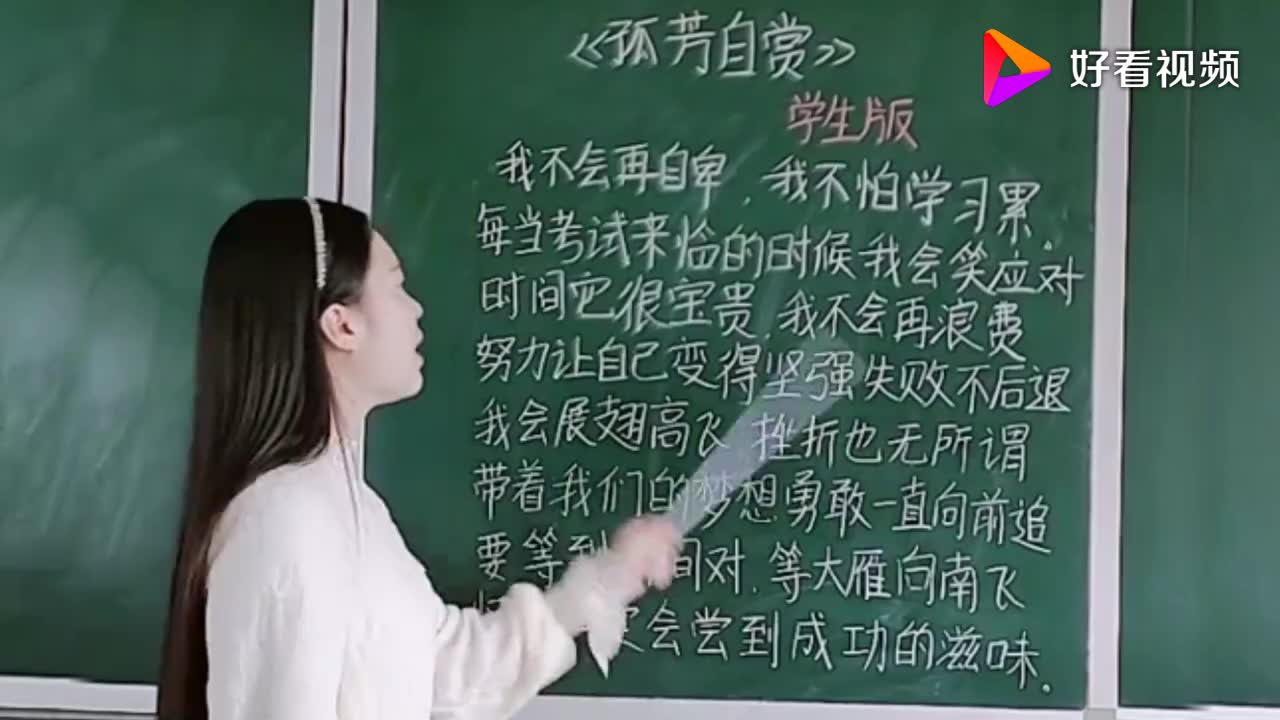 《孤芳自赏》
好看视频
学生版
我不会再自卑，我不怕学习累.
每当考试来临的时候我会笑应对
时间它很宝贵.我不会再浪费
努力让自己变得坚强失败不后退
我会展翅高飞 挫折也无所谓
带着我们的梦想勇敢一直向前追
要等到 间对.等大雁向南飞
会尝到成功的滋味.